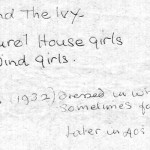 nd The Ivy-
urel House girls
ind girls.
(1932) Dressed in wh
Sometimes fo
Later in